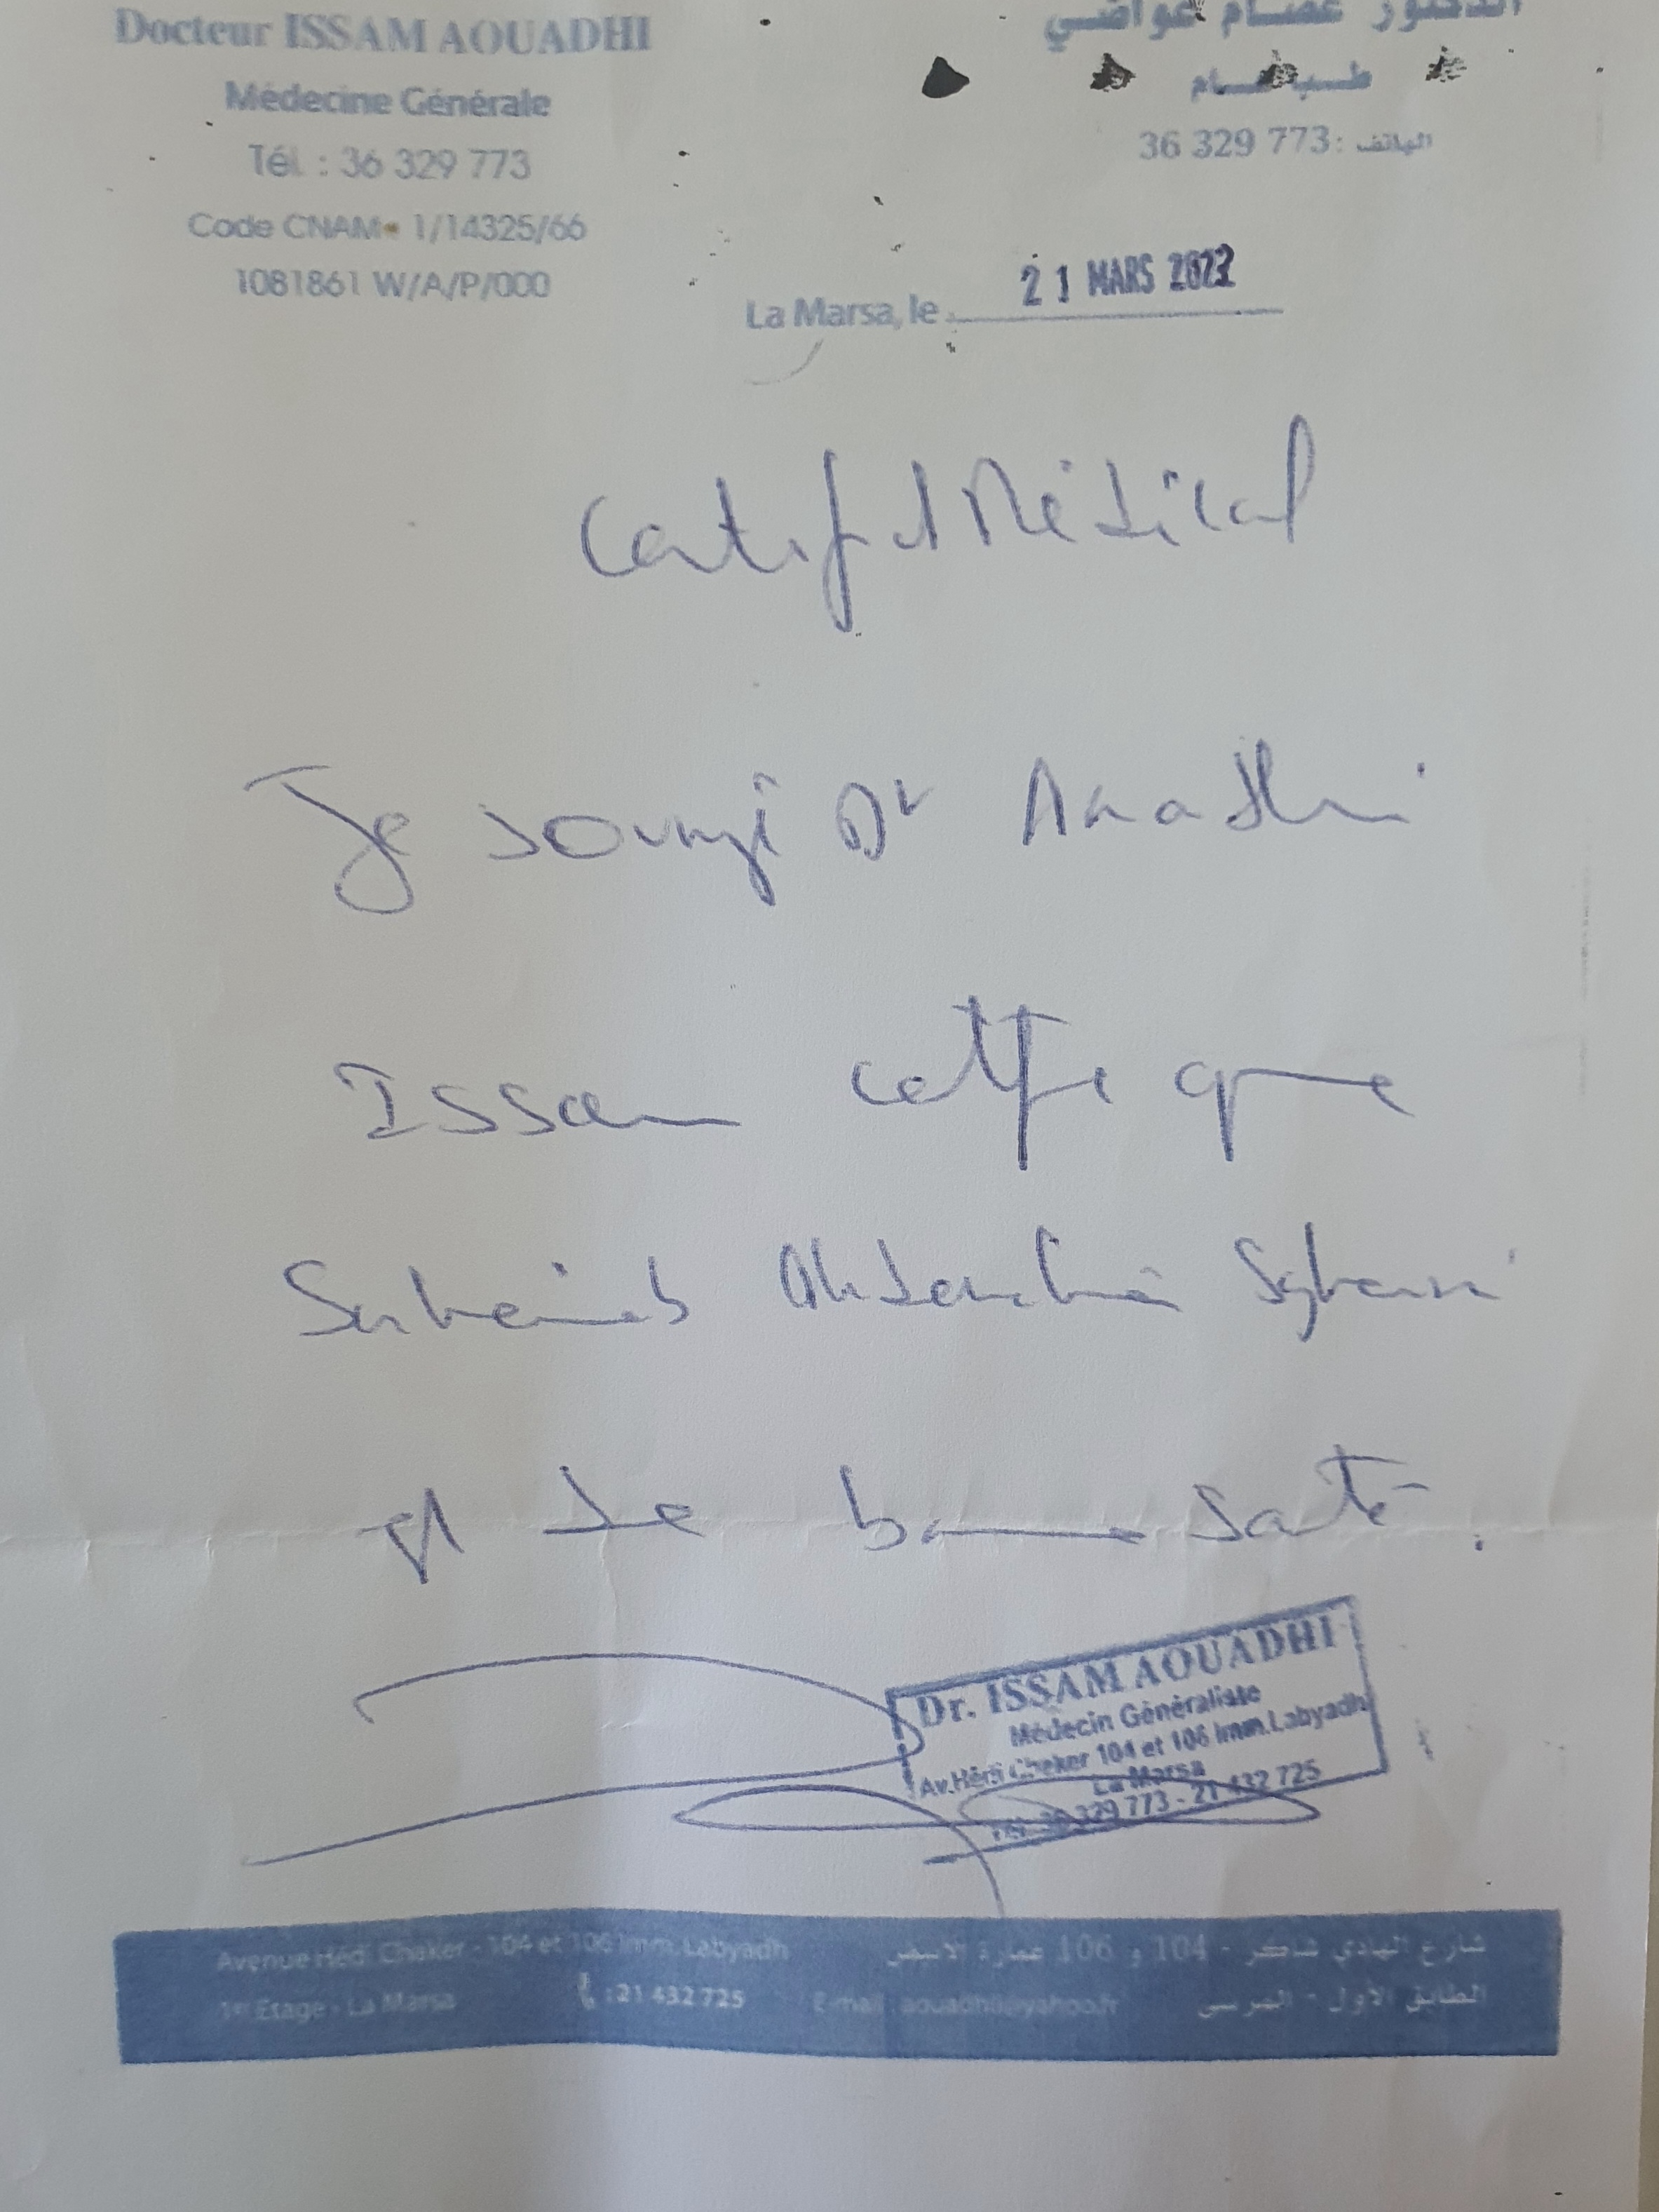 Docteur ISSAM AOUADHI
Médecine Générale
Tél : 36 329 773
Code CNAM 1/14325/66
1081861 W/A/P/000
الدكتور عصام عواضي
طب عام
الهاتف: 773 329 36
La Marsa, le 21 MARS
Certificat Médical
Je soussigné Dr Aouadhi
Issam certifie que
est de bonne santé.
Dr. ISSAM AOUADHI
Médecin Généraliste
Av.Hédi Cheker 104 et 106 Imm.Labyadh
La Marsa
Tél: 36 329 773 - 21 432 725
Avenue Hédi Cheker - 104 et 106 Imm.Labyadh
1er Etage - La Marsa
: 21 432 725
E-mail : aouadhii@yahoo.fr
شارع الهادي شاكر - 104 و 106 عمارة الابيض
الطابق الأول - المرسى